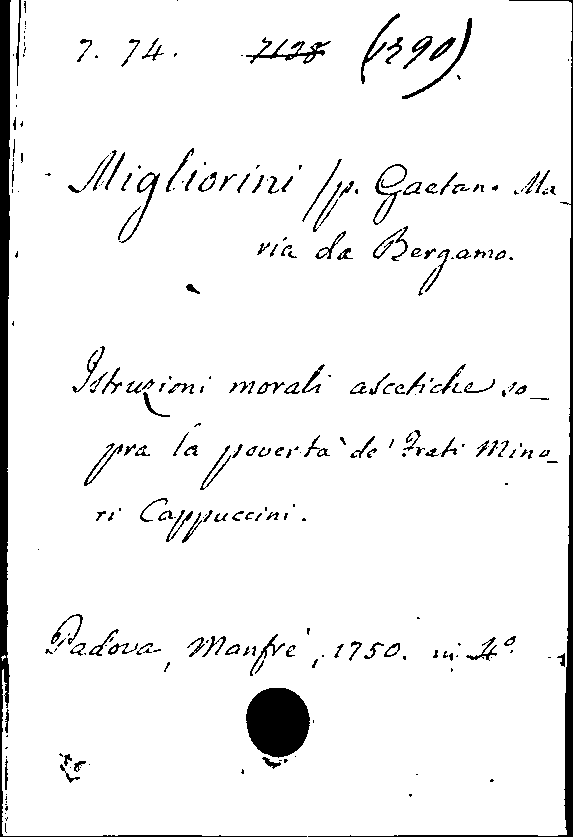 7. 74. 7128 (1390)
Migliorini /p. Gaetano Ma-
ria da Bergamo.
Istruzioni morali ascetiche so-
pra la povertà de' Frati Mino-
ri Cappuccini.
Padova, Manfrè, 1750. in 4º.